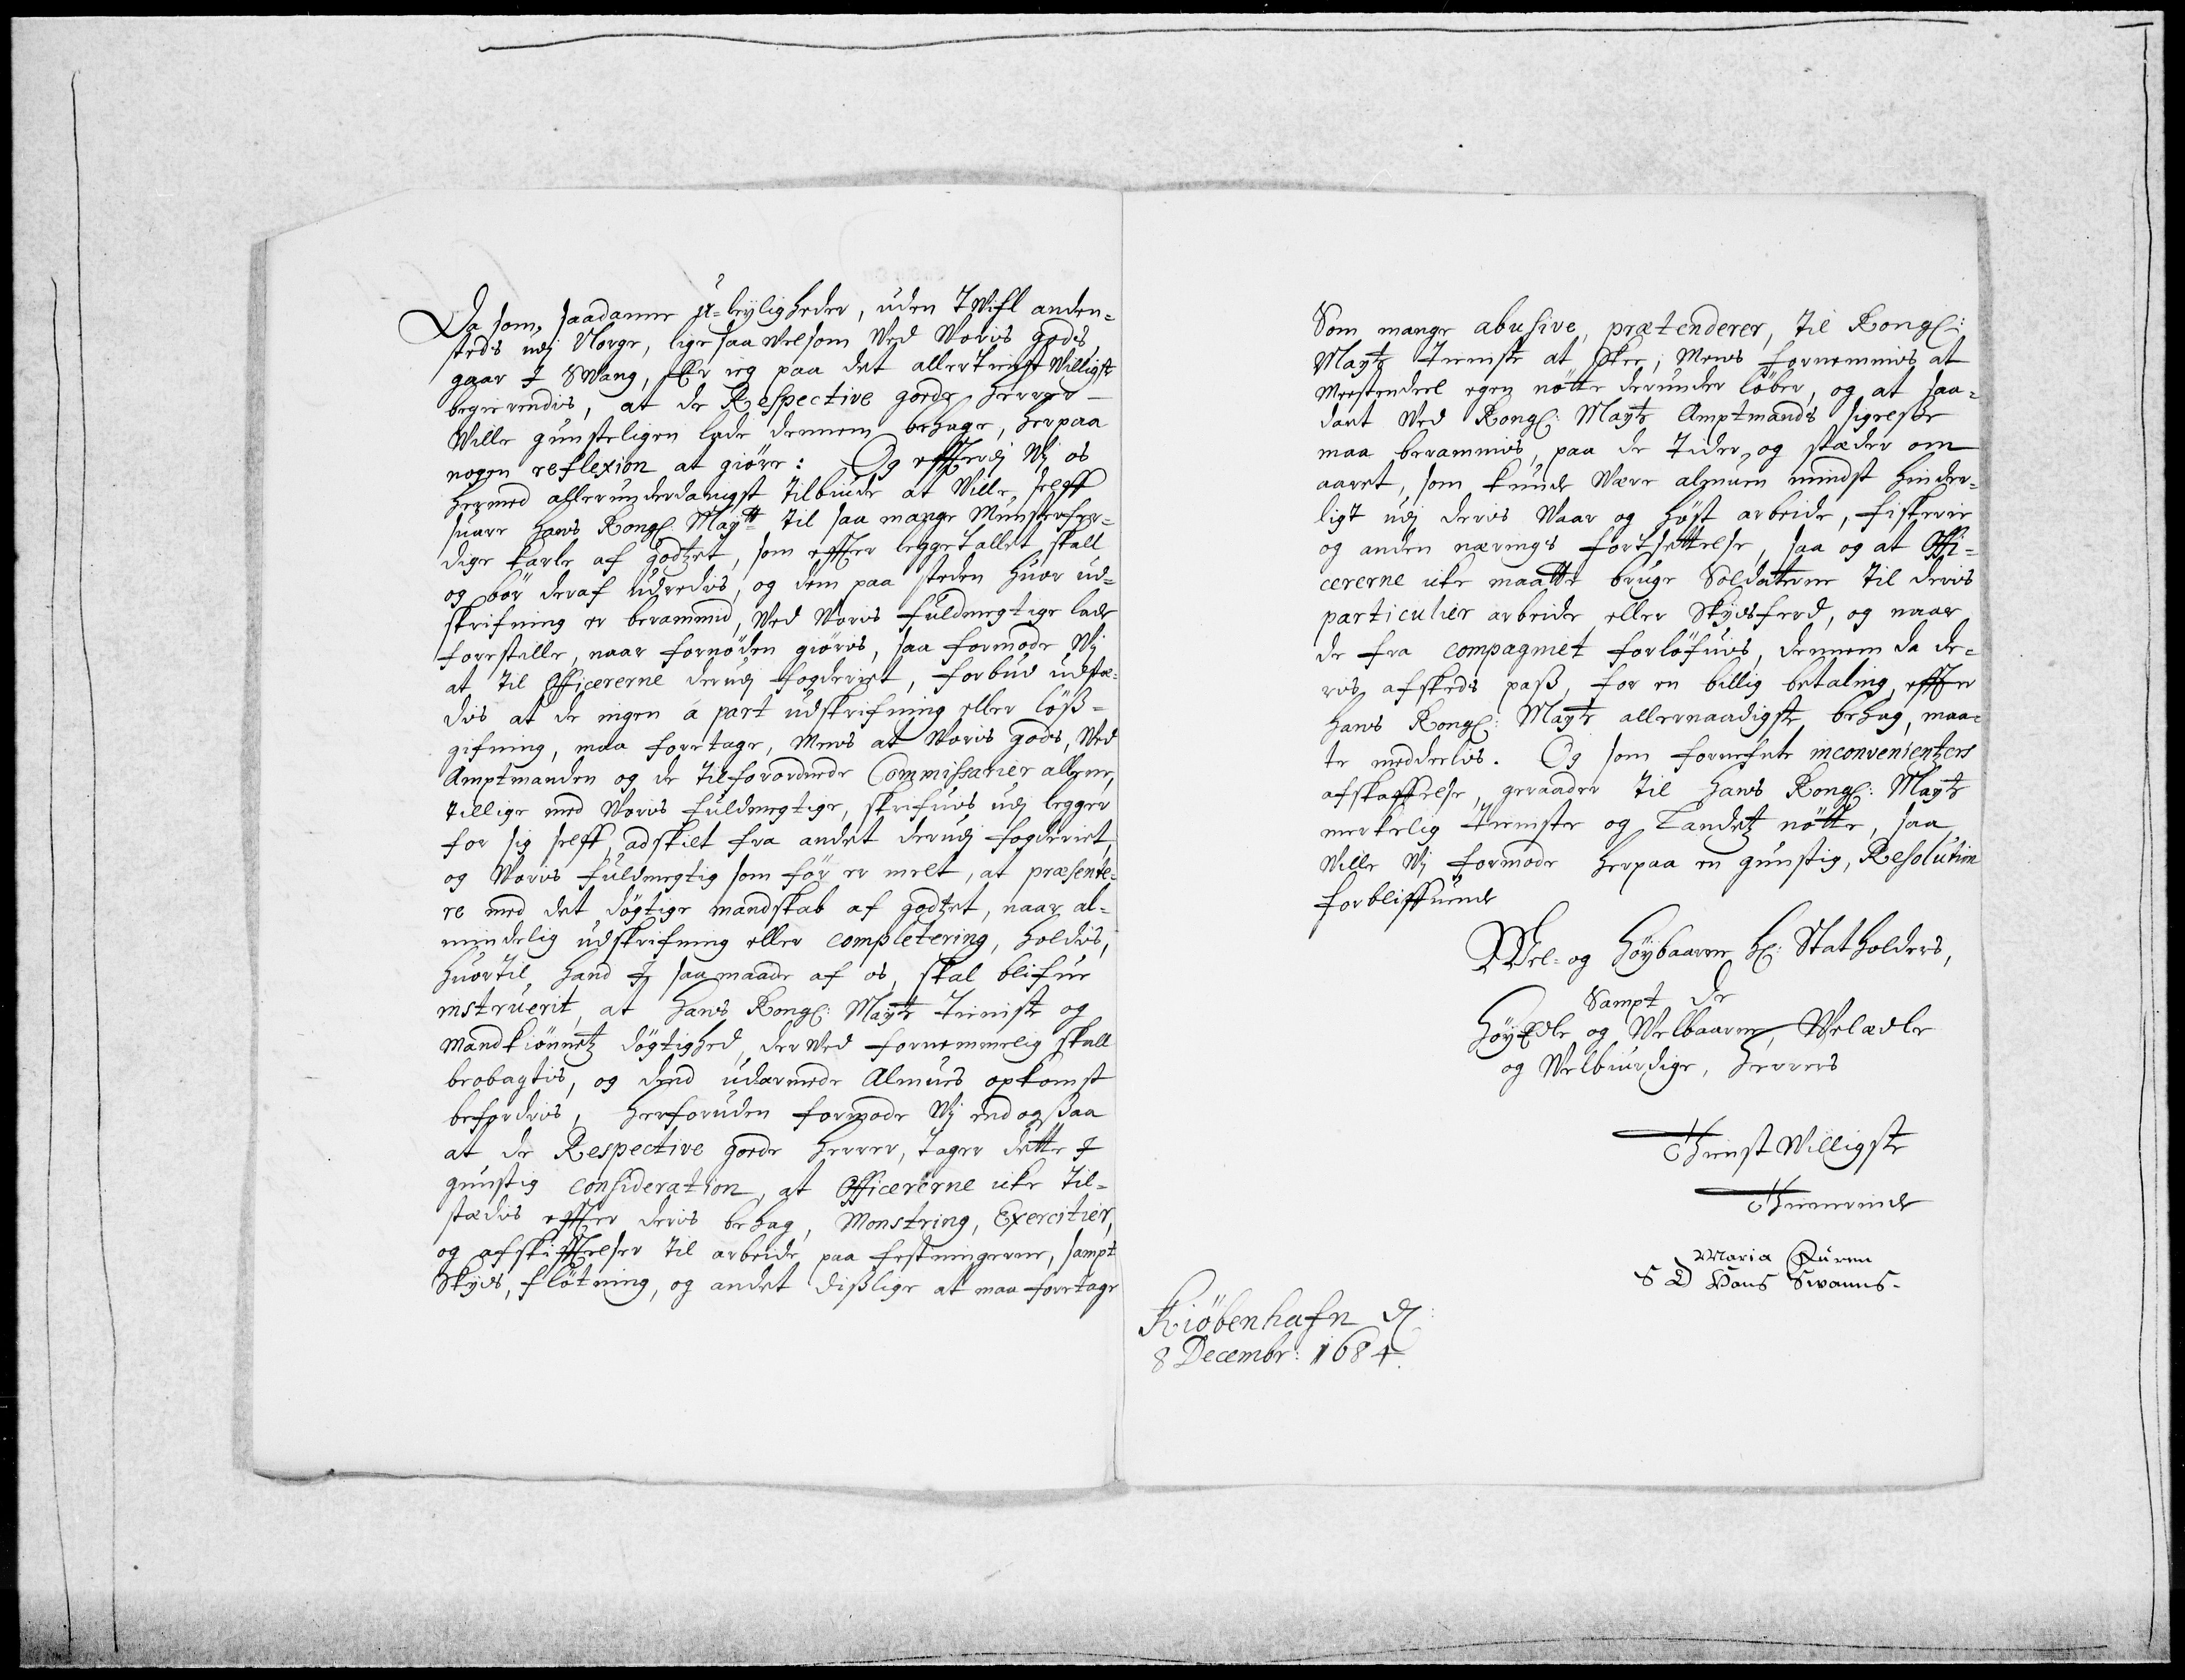 Da som, saadanne U-leyligheder, uden Twifl anden-
steds udj Norge, lige saa velsom Ved Voris gods,
gaar I Swang, Er ieg paa det allertienstVilligst
begierendis, at de Respective goede Herrer
Wille gunsteligen lade dennem behage, herpaa
nogen reflexion at giöre: Og effterdj Wj os
hermed allerunderdanigst tilbiude at Ville selff
suare hans Kongl: Maytt til saa mange Munsterfer-
dige karle af godtzet, som effter leggetallet skall
og bör deraf udredis, og dem paa steden huor ud-
skrifning er berammid, Ved Voris fuldmegtige lade
forestille, naar fornöden giöris, saa formode Wj
at til Officererne derudj fogderiet, forbud udstæ-
dis at de ingen á part udskrifning eller löß-
gifning, maa foretage, Mens at Voris gods, Ved
Amptmanden og de tilforordnede Commissarier allene,
tillige med Voris fuldmegtige, skrifuis udj legger
for sig selff, adskilt fra andet derudj fogderiet,
og Voris fuldmegtig som för er melt, at præsente-
re med det dögtige mandskab af godtzet, naar al-
mindelig udskrifning eller completering, holdis,
huortil hand I saamaade af os skal blifue
instruerit, at Hans Kongl: Maytz Tieniste og
Mandkiönnetz dögtighed, derVed fornemmelig skall
beobagtis, og dend udarmede Almues opkomst
befordris, herforuden formode Wj endogsaa
at de Respective goede Herrer, tager dette I
gunstig consideration, at Officererne icke til-
stædis effter deris behag, Monstring, Exercitier,
og afskiffelser til arbeide paa festningerne, sampt
Skyds, flötning, og andet dißlige at maa foretage
Som mange abusive, prætenderer, til Kongl:
Maytz tieniste at skee, Mens fornemmis at
Meestendeel egen nötte derunder löber, og at saa-
dant Ved Kongl: Maytz Amptmands sigelse
maa berammis, paa de Tider og stæder om
aaret, som kunde Være almuen mindst hinder-
ligt udj deris Vaar og höst arbeide, fiskerie
og anden nærings fortsettelse, saa og at Offi-
cererne icke maatte bruge Soldatterne til deris
particulier arbeide eller Skydsferd, og naar
de fra compagniet forlöfuis, dennem da de-
ris afskeds paß, for en billig betaling, effter
Hans Kongl: Maytz allernaadigste behag, maa-
te meddeelis. Og som fornefnte inconvenientzers
afskaffelse, geraader til Hans Kongl: Maytz
merkelig tieniste og Landetz nötte, saa
Wille Wj formode herpaa en gunstig, Resolution
forbliffuende
Wel- og Höybaarne Hl: Statholders,
Sampt de
HöyEdle og Welbaarne, Welædle
og Welbiurdige, Herrers
ThienstVilligste
Thienerinde
Maria
S
Hans Swanns.
Kiöbenhafn dl:
8 Decembr: 1684.